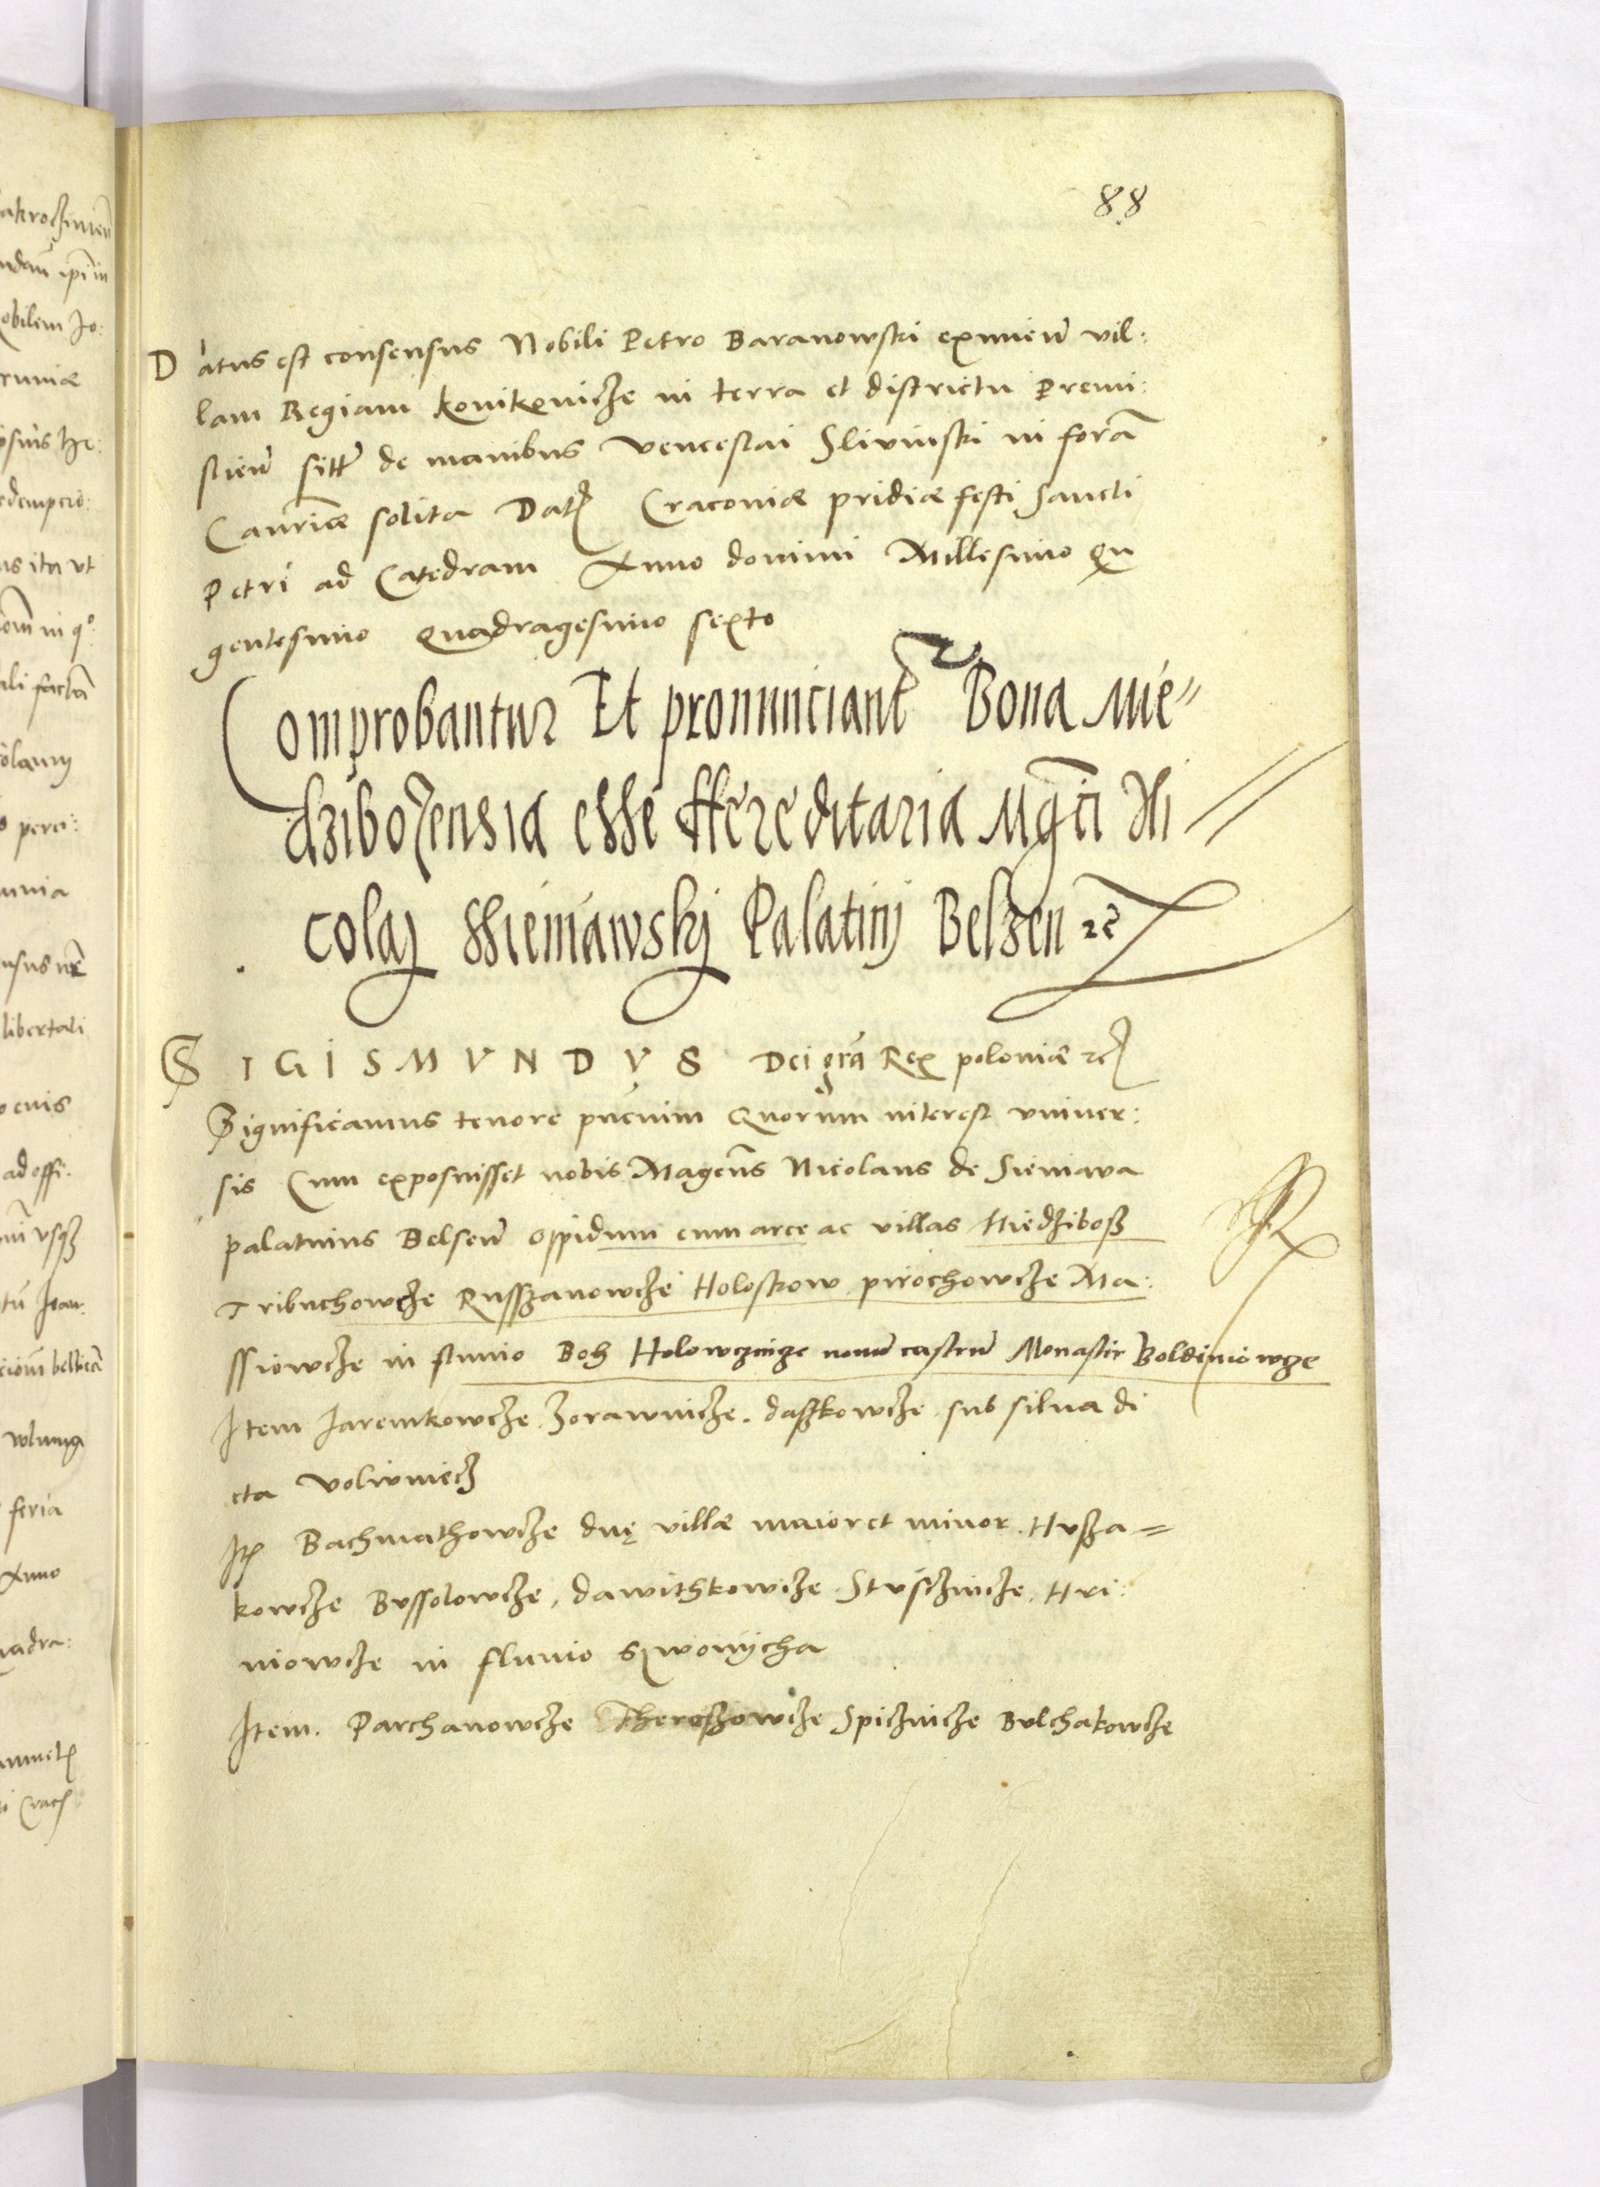 88
Datus est consensus Nobili Petro Baranowski eximen̄ vil:
lam Regiam Konikowicze in terra et districtu Premi:
slien̄ sitt̄ de manibus Venceslai Slivinski in forā
Can̄riæ solita Dat̄ Cracoviæ pridiæ festi Sancti
Petri ad Catedram Anno domini Millesimo Qu
gentesimo Quadragesimo sexto
Comprobantur Et pronunciant̄ Bona Mie⸗
dzibozensia esse Hereditaria Mgci Ni
colaj Sieniawskj Palatini Belzen etc̄
SIGISMVNDVS Dei grā Rex poloniæ etc̄
Significamus tenore pn̄cium Quorum interest vniuer:
sis Cum exposuisset nobis Magcūs Nicolaus de Sieniawa
palatinus Belsen̄ oppidum cum arce ac villas Miedziboß
Tribuchowcze Russzanowcze Holoskow pirochowcze Ma:
ssiowcze in fluuio Boh Holowczincze nouū castrū Monastir Boldiniowcze
Item Jaremkowcze Zorawnicze. daßkowcze sub silua di
cta Voliwniecz
It̄ Bachmathowcze duę villæ maior et minor. Hußa⸗
kowcze Bussolowcze, dawithkowcze Stusczincze, Hri:
niowcze in fluuio Szwonijcha
Item. Parchanowcze Theroszowcze Spiczincze Bulchakowcze